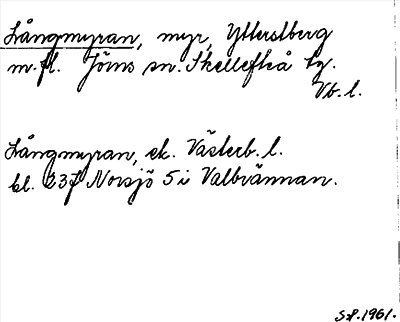 Långmyran, myr, Ytterstberg
m.fl. Jörns sn. Skellefteå tg.
Vb.l.
Långmyran, ek. Västerb.l.
bl. 237 Norsjö 5 i Valbrännan.
S.P. 1961.